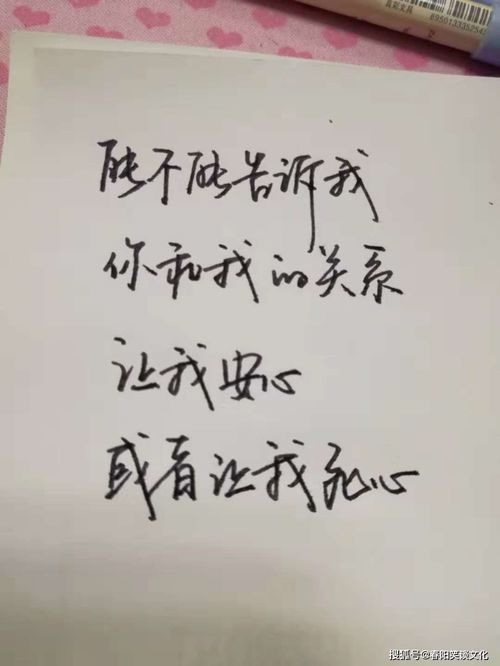 直彩文具
6950133352542
能不能告诉我
你和我的关系
让我安心
或者让我死心
搜狐号@春阳笑谈文化